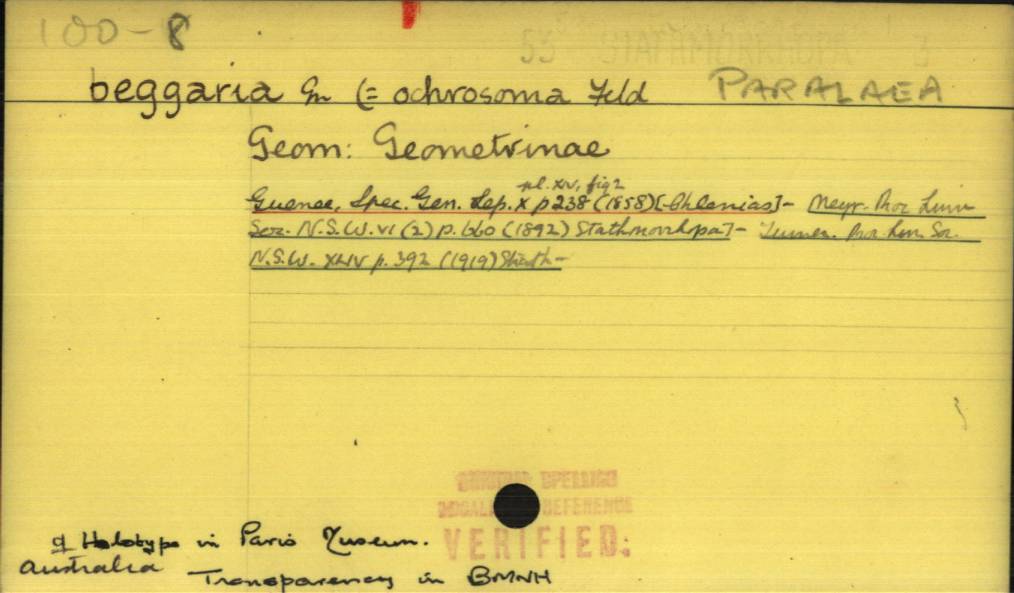 100-8
53 STATHMORRHOPA 3
beggaria Gn (= ochrosoma Feld PARALAEA
Geom: Geometrinae
pl. XIV, fig 2
Guenee, Spec. Gen. Lep. X p 238 (1858) [-Chlenias]- Meyr. Proc Linn
Soc. N.S.W. VI (2) p. 660 (1892) Stathmorrhopa]- Turner. Proc Linn. Soc.
N.S.W. XLIV p. 392 (1919) Stath-
ORIGINAL SPELLING
REFERENCE
VERIFIED:
Holotype in Paris Museum.
Australia
Transparency in BMNH